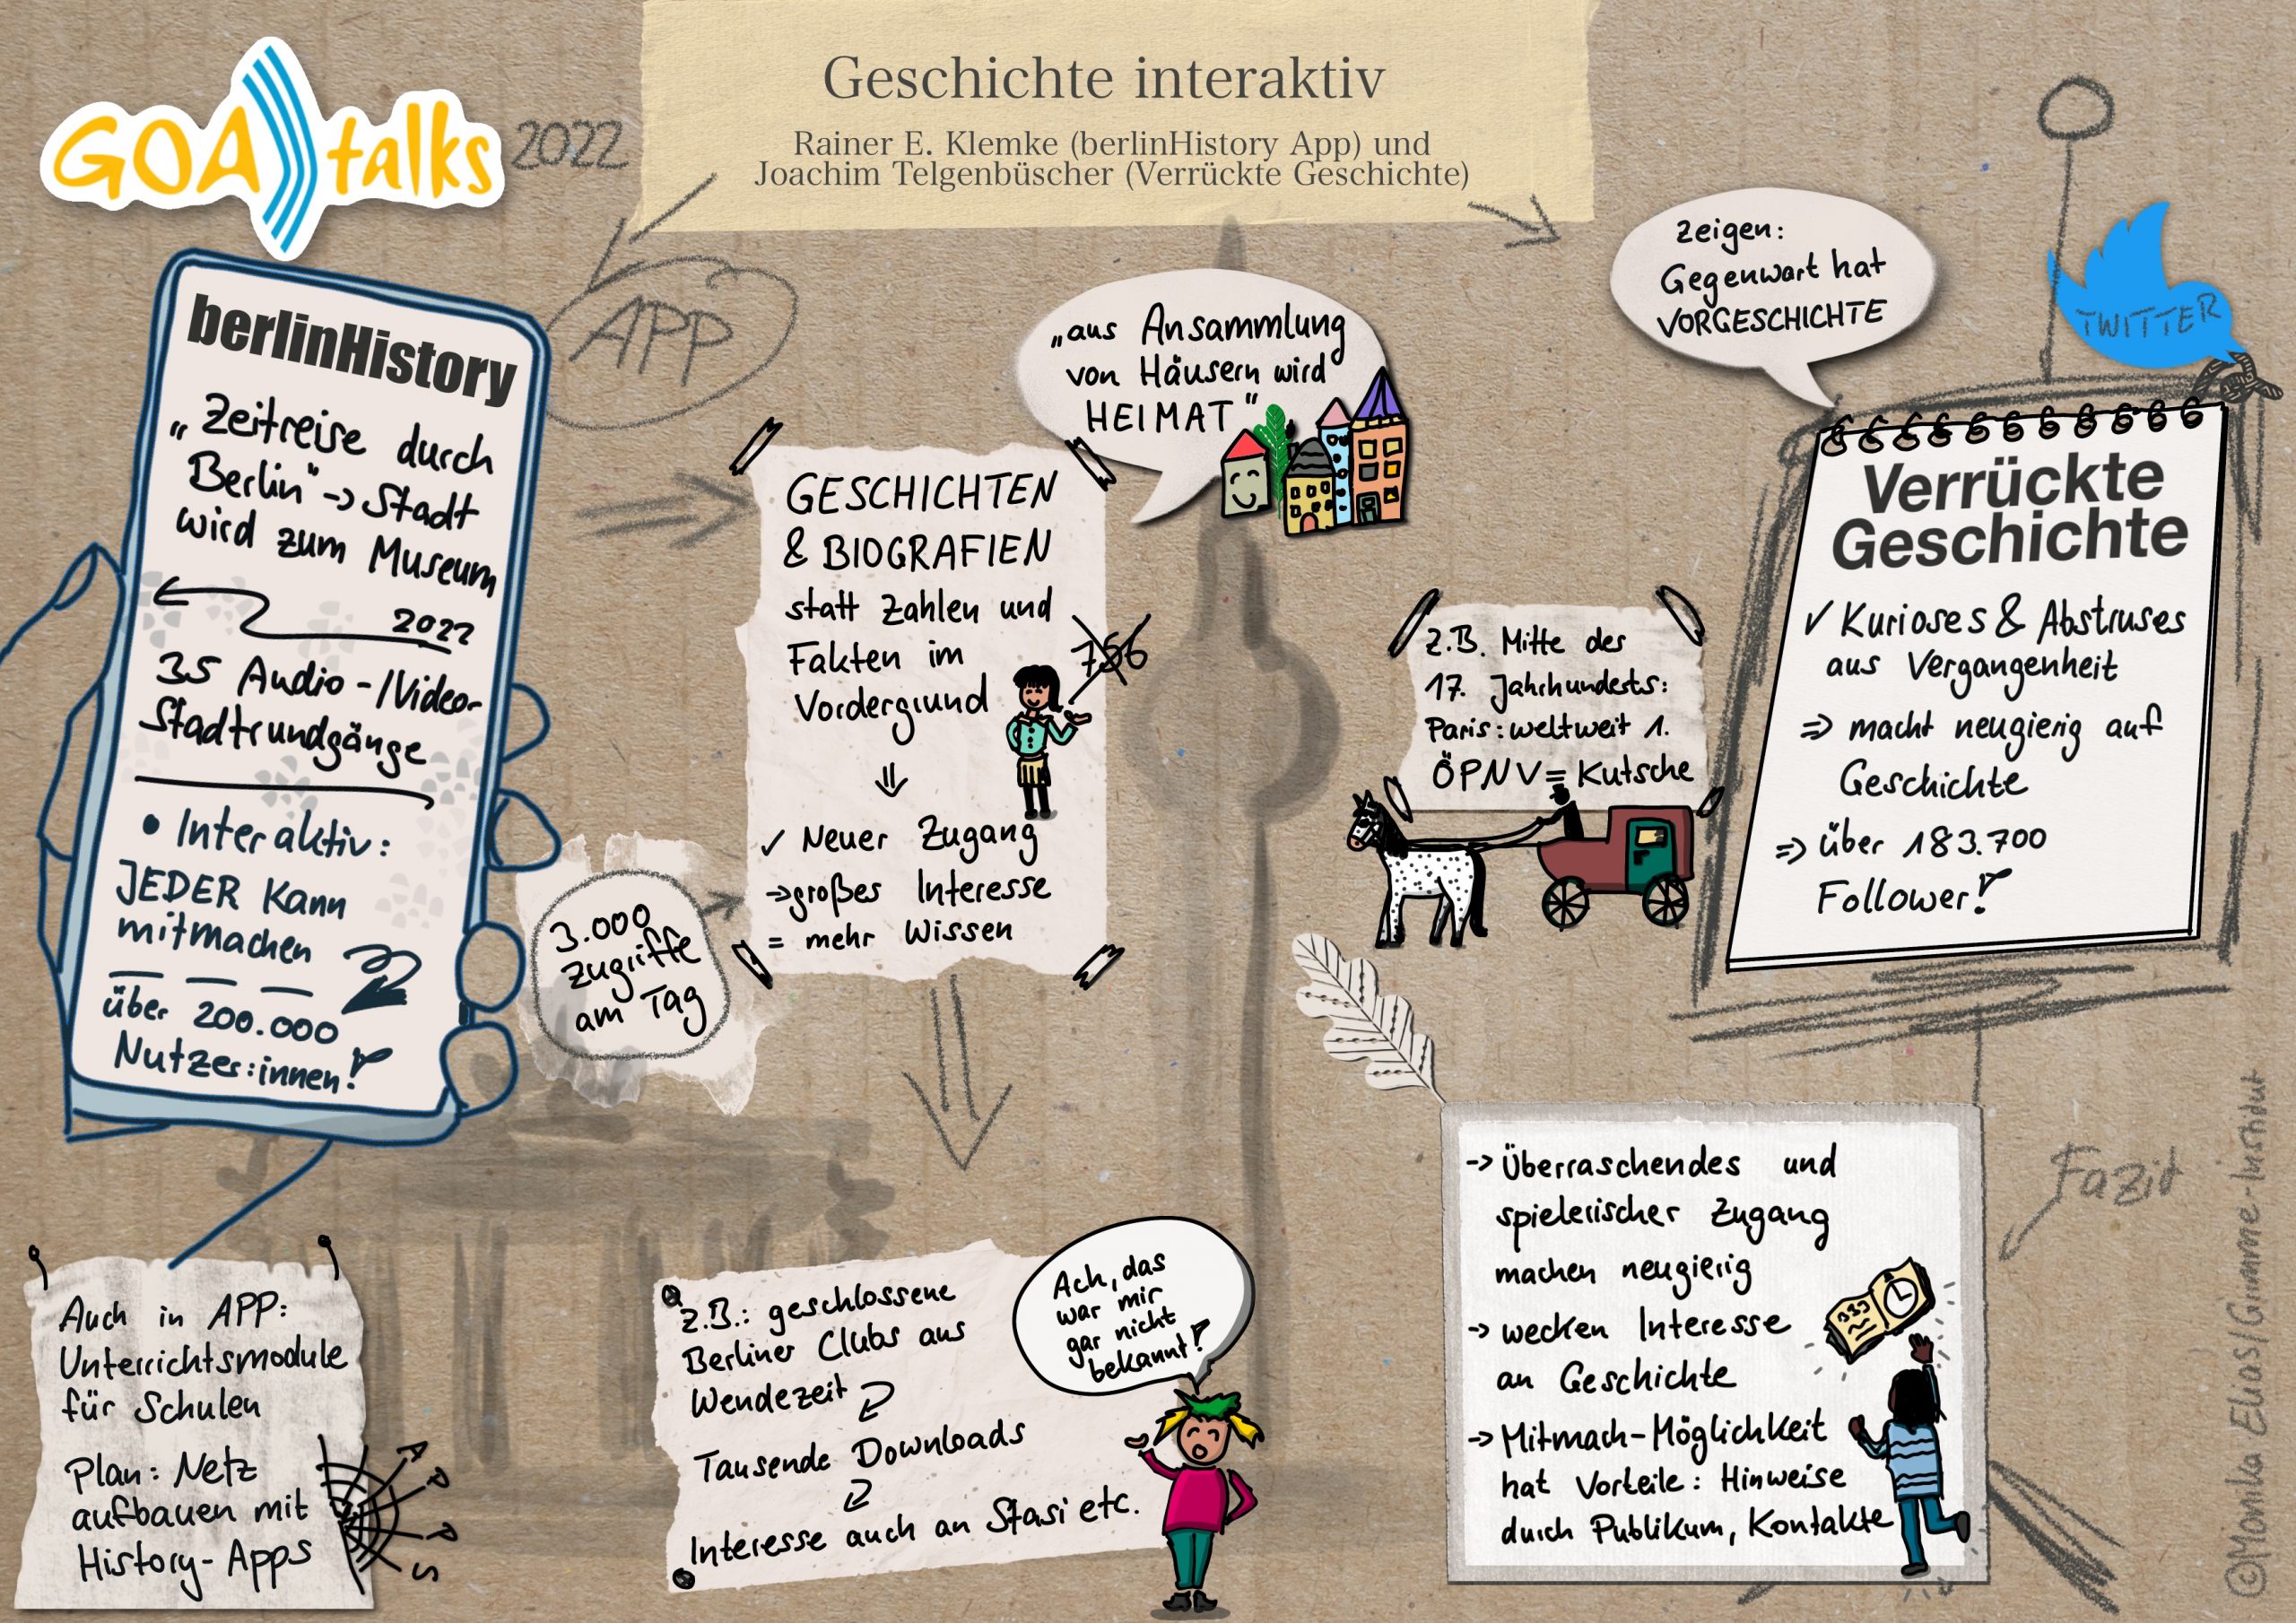 GOA talks 2022
Geschichte interaktiv
Rainer E. Klemke (berlinHistory App) und
Joachim Telgenbüscher (Verrückte Geschichte)
APP
berlinHistory
„Zeitreise durch
Berlin" -> Stadt
wird zum Museum
2022
35 Audio-/Video-
Stadtrundgänge
• Interaktiv:
JEDER kann
mitmachen
über 200.000
Nutzer:innen!
3.000
Zugriffe
am Tag
Auch in APP:
Unterrichtsmodule
für Schulen
Plan: Netz
aufbauen mit
History-Apps
APPS
„aus Ansammlung
von Häusern wird
HEIMAT"
GESCHICHTEN
& BIOGRAFIEN
statt Zahlen und
Fakten im
Vordergrund
756
⇓
✓ Neuer Zugang
-> großes Interesse
= mehr Wissen
z.B.: geschlossene
Berliner Clubs aus
Wendezeit
Tausende Downloads
Interesse auch an Stasi etc.
Ach, das
war mir
gar nicht
bekannt!
Zeigen:
Gegenwart hat
VORGESCHICHTE
TWITTER
Verrückte
Geschichte
✓ Kurioses & Abstruses
aus Vergangenheit
=> macht neugierig auf
Geschichte
=> über 183.700
Follower!
z.B. Mitte des
17. Jahrhunderts:
Paris: weltweit 1.
ÖPNV = Kutsche
Fazit
-> Überraschendes und
spielerischer Zugang
machen neugierig
-> wecken Interesse
an Geschichte
-> Mitmach-Möglichkeit
hat Vorteile: Hinweise
durch Publikum, Kontakte
©Monika Elias/Gimme-Institut